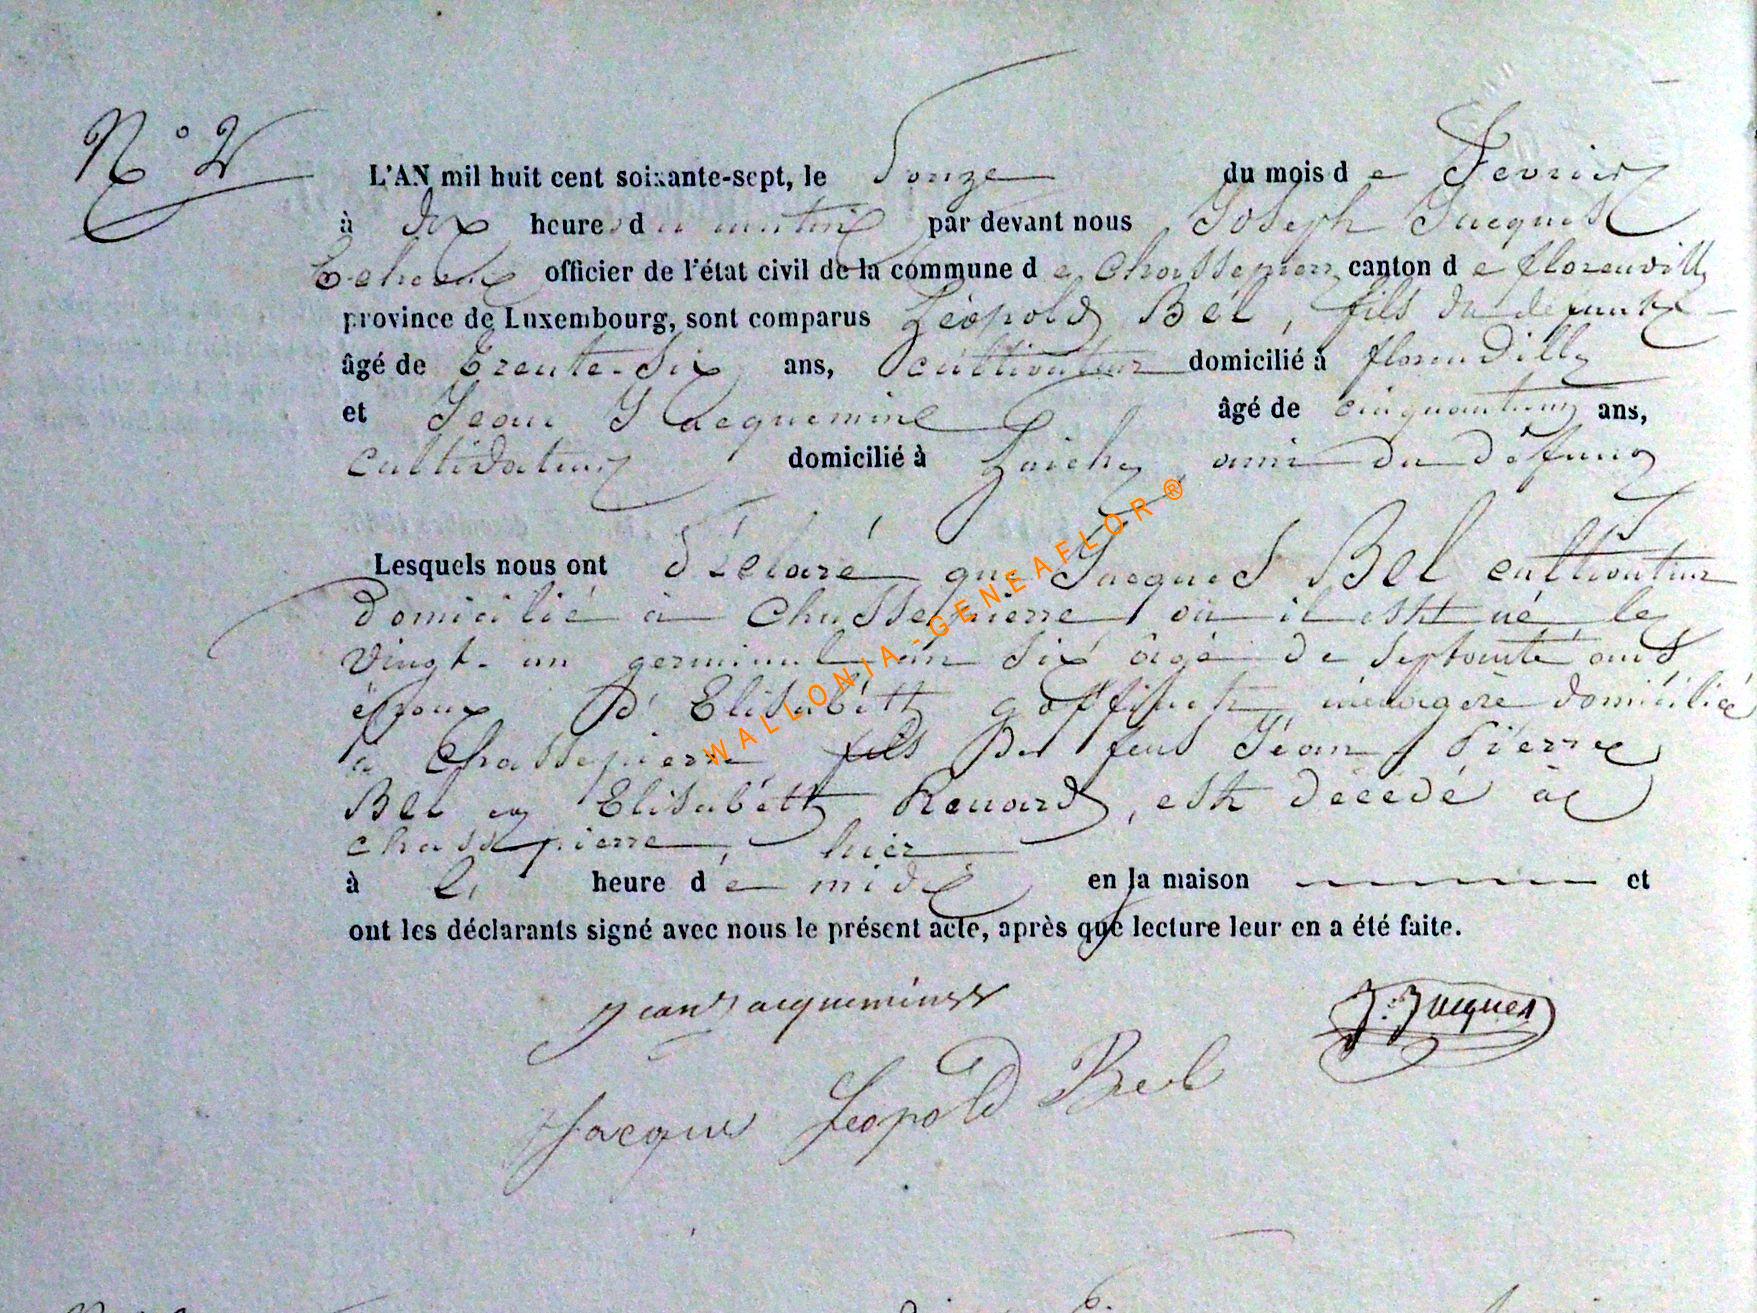 N° 2
L'AN mil huit cent soixante-sept, le Douze du mois de Fevrier
à dix heures du matin par devant nous Joseph Jacques
officier de l'état civil de la commune de Chassepierre canton de florenville
province de Luxembourg, sont comparus Léopold Bél, fils du défunt
âgé de trente-six ans, cultivateur domicilié à florenville
et Jean Jacquemine âgé de ans,
cultivateur domicilié à Laiche, ami du défunt
Lesquels nous ont Déclaré que Jacques Bel cultivateur
domicilié à Chassepierre où il est né le
vingt-un germinal an six âgé de septante ans
époux d'Elisabeth goffinet ménagère domiciliée
à Chassepierre fils de feu Jean Pierre
Bel et Elisabeth Renard, est décédé à
chassepierre, hier
à heure de midi en la maison et
ont les déclarants signé avec nous le présent acte, après que lecture leur en a été faite.
Jean Jacquemin J. Jacques
Jacque Leopold Bel
WALLONIA-GENEAFLOR®